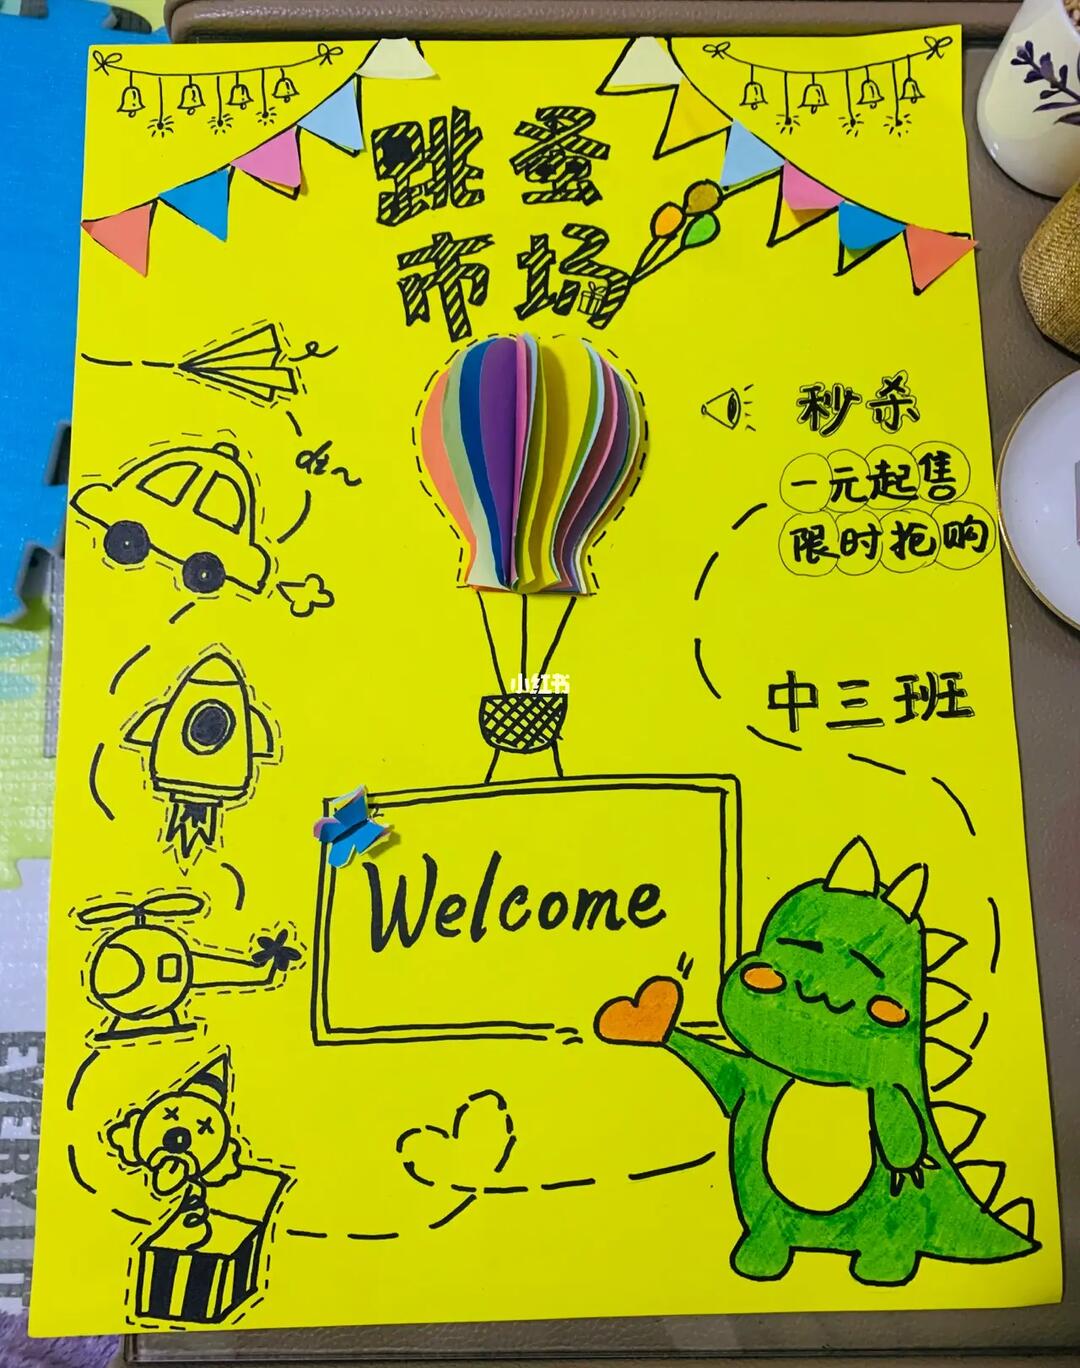 跳蚤
市场
di~
秒杀
一元起售
限时抢购
小红书
中三班
Welcome